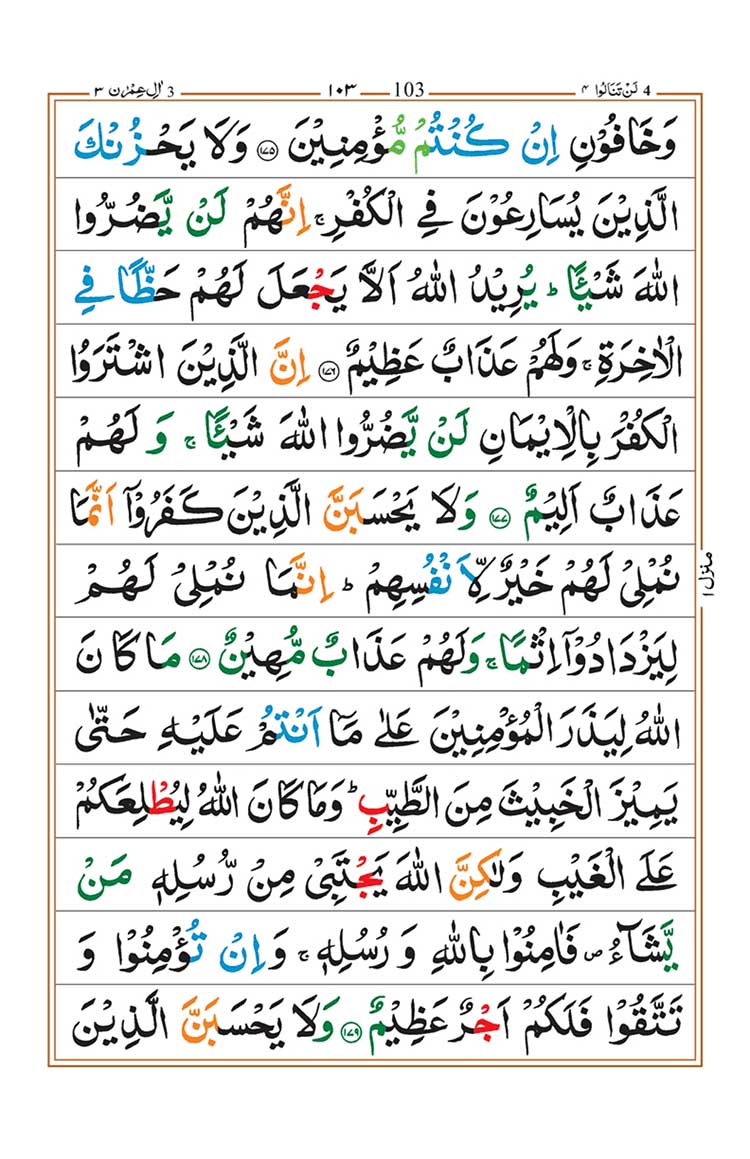 4 لَنْ تَنَالُوا ۴ 103 ۱۰۳ 3 اٰلِ عِمْرٰن ۳
وَخَافُوْنِ اِنْ كُنْتُمْ مُّؤْمِنِيْنَ ﴿۱۷۵﴾ وَلَا يَحْزُنْكَ
الَّذِيْنَ يُسَارِعُوْنَ فِي الْكُفْرِ ۚ اِنَّهُمْ لَنْ يَّضُرُّوا
اللّٰهَ شَيْـًٔا ؕ يُرِيْدُ اللّٰهُ اَلَّا يَجْعَلَ لَهُمْ حَظًّا فِي
الْاٰخِرَةِ ۚ وَلَهُمْ عَذَابٌ عَظِيْمٌ ﴿۱۷۶﴾ اِنَّ الَّذِيْنَ اشْتَرَوُا
الْكُفْرَ بِالْاِيْمَانِ لَنْ يَّضُرُّوا اللّٰهَ شَيْـًٔا ۚ وَلَهُمْ
عَذَابٌ اَلِيْمٌ ﴿۱۷۷﴾ وَلَا يَحْسَبَنَّ الَّذِيْنَ كَفَرُوْۤا اَنَّمَا
نُمْلِيْ لَهُمْ خَيْرٌ لِّاَنْفُسِهِمْ ؕ اِنَّمَا نُمْلِيْ لَهُمْ
لِيَزْدَادُوْۤا اِثْمًا ۚ وَلَهُمْ عَذَابٌ مُّهِيْنٌ ﴿۱۷۸﴾ مَا كَانَ
اللّٰهُ لِيَذَرَ الْمُؤْمِنِيْنَ عَلٰى مَاۤ اَنْتُمْ عَلَيْهِ حَتّٰى
يَمِيْزَ الْخَبِيْثَ مِنَ الطَّيِّبِ ؕ وَمَا كَانَ اللّٰهُ لِيُطْلِعَكُمْ
عَلَى الْغَيْبِ وَلٰكِنَّ اللّٰهَ يَجْتَبِيْ مِنْ رُّسُلِهٖ مَنْ
يَّشَآءُ ۪ فَاٰمِنُوْا بِاللّٰهِ وَرُسُلِهٖ ۚ وَاِنْ تُؤْمِنُوْا وَ
تَتَّقُوْا فَلَكُمْ اَجْرٌ عَظِيْمٌ ﴿۱۷۹﴾ وَلَا يَحْسَبَنَّ الَّذِيْنَ
منزل ۱